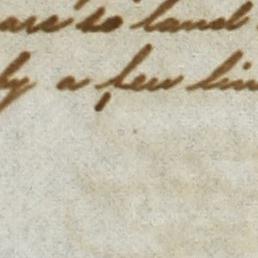 are to land
by a few lin